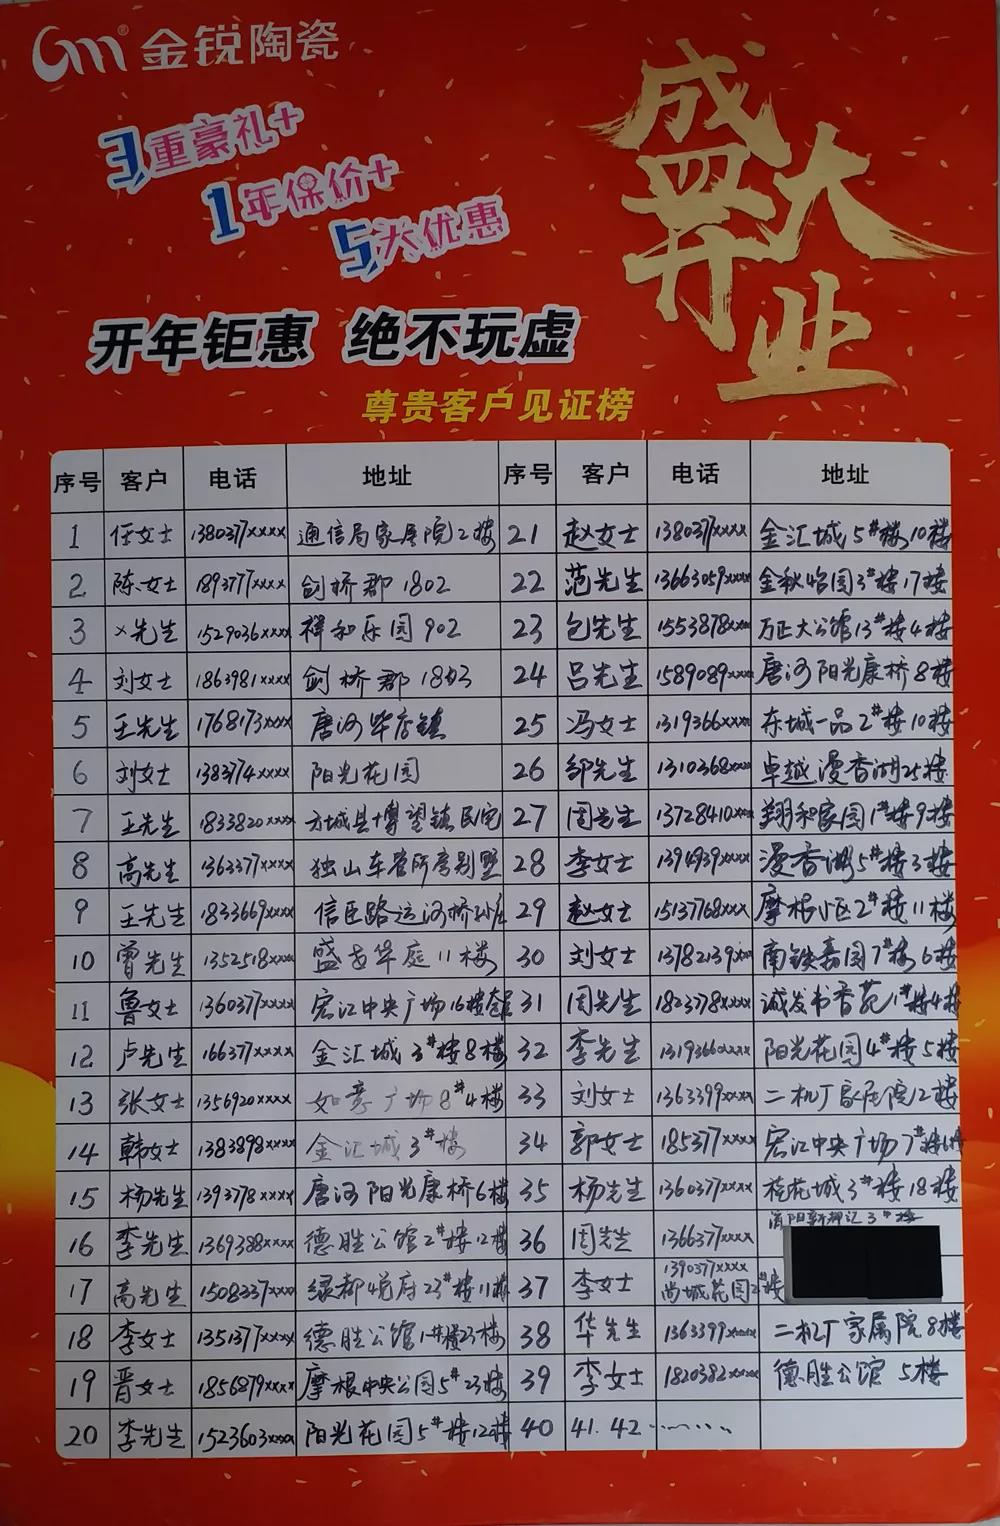 金锐陶瓷
3重豪礼+
1年保价+
5大优惠
盛大开业
开年钜惠 绝不玩虚
尊贵客户见证榜
序号 客户 电话 地址 序号 客户 电话 地址
1 任女士 1380377xxxx 通信局家属院2楼 21 赵女士 1380377xxxx 金汇城5#楼10楼
2 陈女士 1893777xxxx 剑桥郡1802 22 范先生 13663059xxxx 金秋怡园3#楼17楼
3 x先生 1529036xxxx 祥和乐园902 23 包先生 1553878xxxx 万正大公馆13#楼4楼
4 刘女士 1863981xxxx 剑桥郡1803 24 吕先生 1589089xxxx 唐河阳光康桥8楼
5 王先生 1768173xxxx 唐河毕店镇 25 冯女士 1319366xxxx 东城一品2#楼10楼
6 刘女士 1383774xxxx 阳光花园 26 邹先生 1310368xxxx 卓越漫香湖25楼
7 王先生 1833820xxxx 方城县博望镇民宅 27 周先生 13728410xxx 翔和家园1#楼9楼
8 高先生 1363377xxxx 独山车管所旁别墅 28 李女士 1394939xxxx 漫香湖5#楼3楼
9 王先生 1833669xxxx 信臣路运河桥 29 赵女士 15137768xxx 摩根小区2#楼11楼
10 曾先生 1352518xxxx 盛世华庭11楼 30 刘女士 13782139xxx 南铁嘉园7#楼6楼
11 鲁女士 1360377xxxx 宏江中央广场16楼 31 周先生 1823778xxxx 诚发书香苑1#楼4楼
12 卢先生 166377xxxx 金汇城3#楼8楼 32 李先生 1319366xxxx 阳光花园4#楼5楼
13 张女士 1356920xxxx 如意广场8#4楼 33 刘女士 1363399xxxx 二机厂家属院12楼
14 韩女士 1383898xxxx 金汇城3#楼 34 郭女士 185377xxxx 宏江中央广场7#楼
15 杨先生 1393778xxxx 唐河阳光康桥6楼 35 杨先生 1360377xxxx 桂花城3#楼18楼
16 李先生 1369388xxxx 德胜公馆2#楼12楼 36 周先生 1366377xxxx 3#楼
17 高先生 1508337xxxx 绿都悦府23#楼11楼 37 李女士 1390377xxxx 尚城花园2#楼
18 李女士 1351377xxxx 德胜公馆1#楼23楼 38 华先生 1363399xxxx 二机厂家属院8楼
19 晋女士 1856879xxxx 摩根中央公园5#23楼 39 李女士 1820382xxxx 德胜公馆5楼
20 李先生 1523603xxxx 阳光花园5#楼12楼 40 41.42……